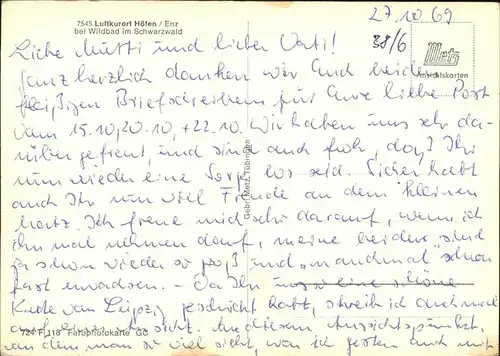 7545 Luftkurort Höfen / Enz
bei Wildbad im Schwarzwald
27.10.69
38/6
Metz
Ansichtskarten
Liebe Mutti und lieber Vati!
Ganz herzlich danken wir Euch beiden
fleißigen Briefschreibern für Eure liebe Post
vom 15.10, 20.10, + 22.10. Wir haben uns sehr da-
rüber gefreut, und sind auch froh, daß Ihr
nun wieder eine Sorge los seid. Sicher habt
auch Ihr nun viel Freude an dem kleinen
Ich freue mich sehr darauf, wenn ich
ihn mal nehmen darf, meine beiden sind
ja schon wieder so groß und "manchmal" schon
fast erwachsen. - Da Ihr uns so eine schöne
Karte von Leipzig geschickt habt, schreib ich auch mal
auf Ansicht. An diesem Aussichtspunkt,
an dem man so viel sieht, war ich gestern auch mit
Gebr. Metz, Tübingen
724 F 118 Farbphotokarte GC